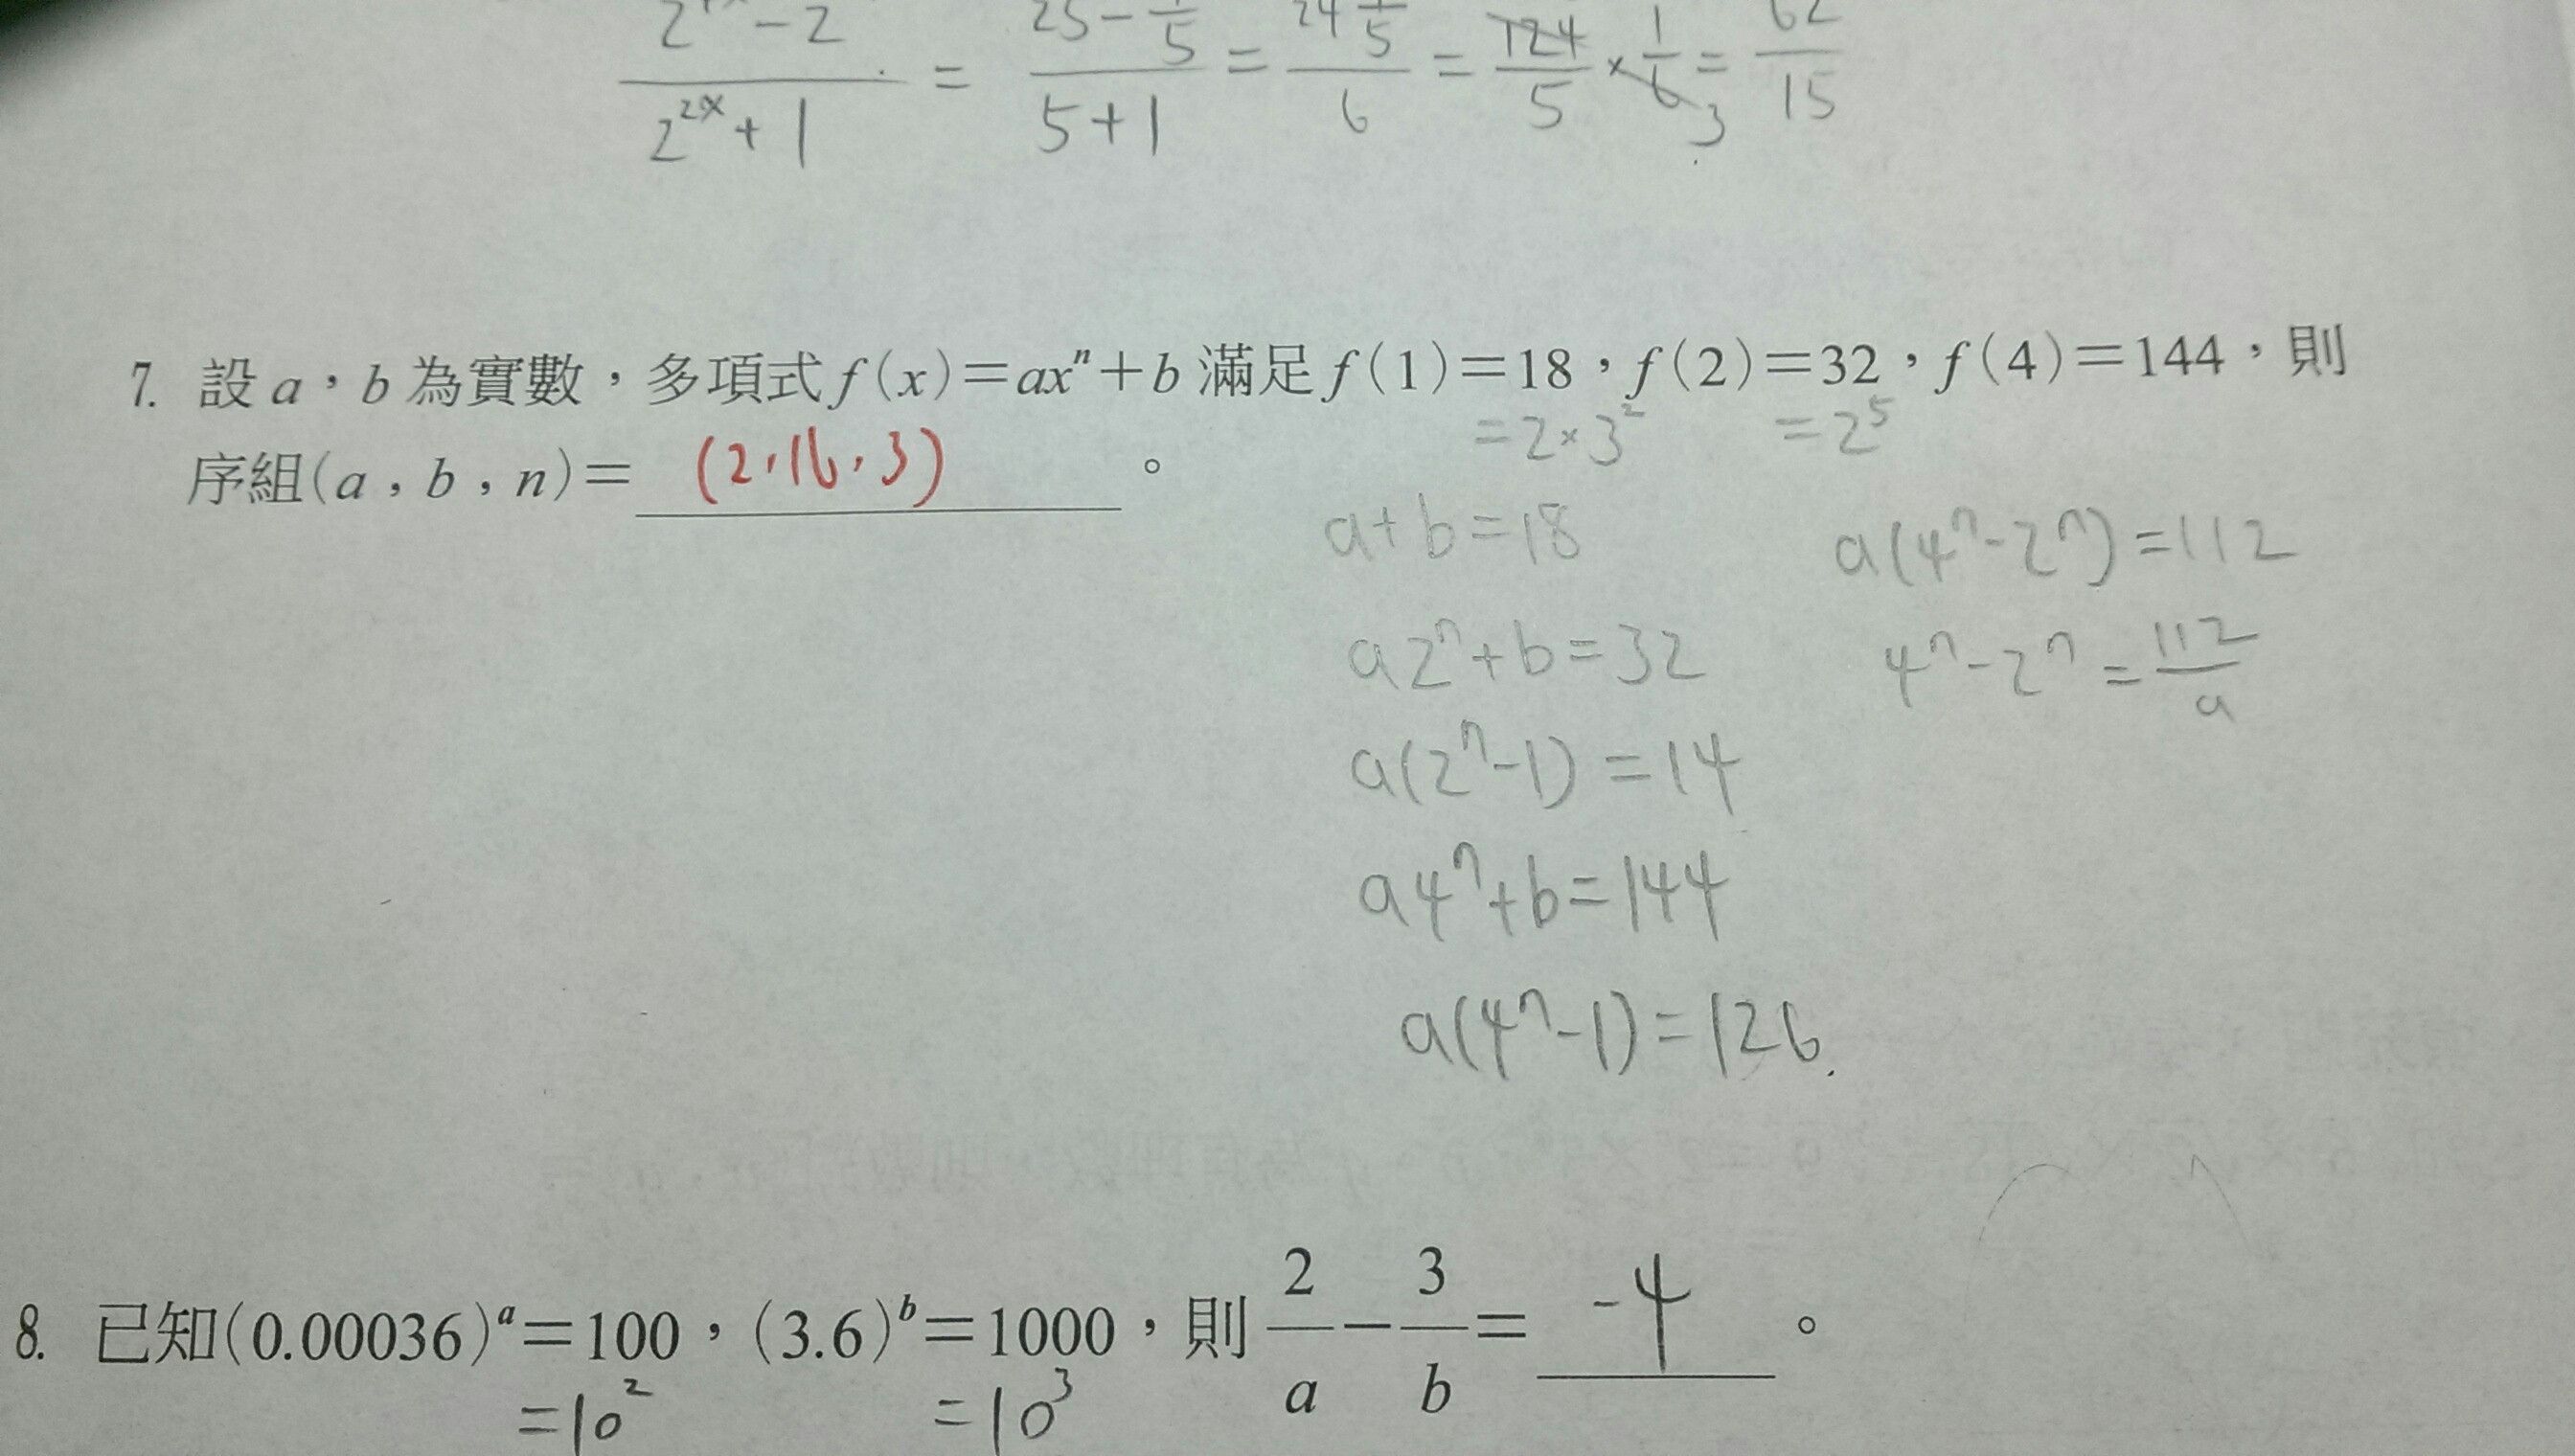 = 25 - 1/5 = 24 1/5 = 124 × 1 = 62
2^2x + 1 5 + 1 6 5 6 3 15
7. 設 a,b 為實數,多項式 f(x)=ax^n+b 滿足 f(1)=18,f(2)=32,f(4)=144,則
=2×3^2 =2^5
序組(a,b,n)= (2,16,3) 。
a+b=18 a(4^n-2^n)=112
a2^n+b=32 4^n-2^n=112/a
a(2^n-1)=14
a4^n+b=144
a(4^n-1)=126
8. 已知(0.00036)^a=100,(3.6)^b=1000,則 2/a-3/b= -4 。
=10^2 =10^3